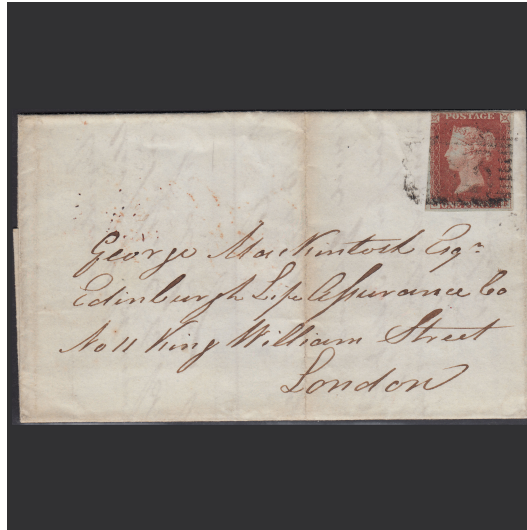 POSTAGE
ONE PENNY
George MacKintosh Esqr
Edinburgh Life Assurance Co
No 11 King William Street
London